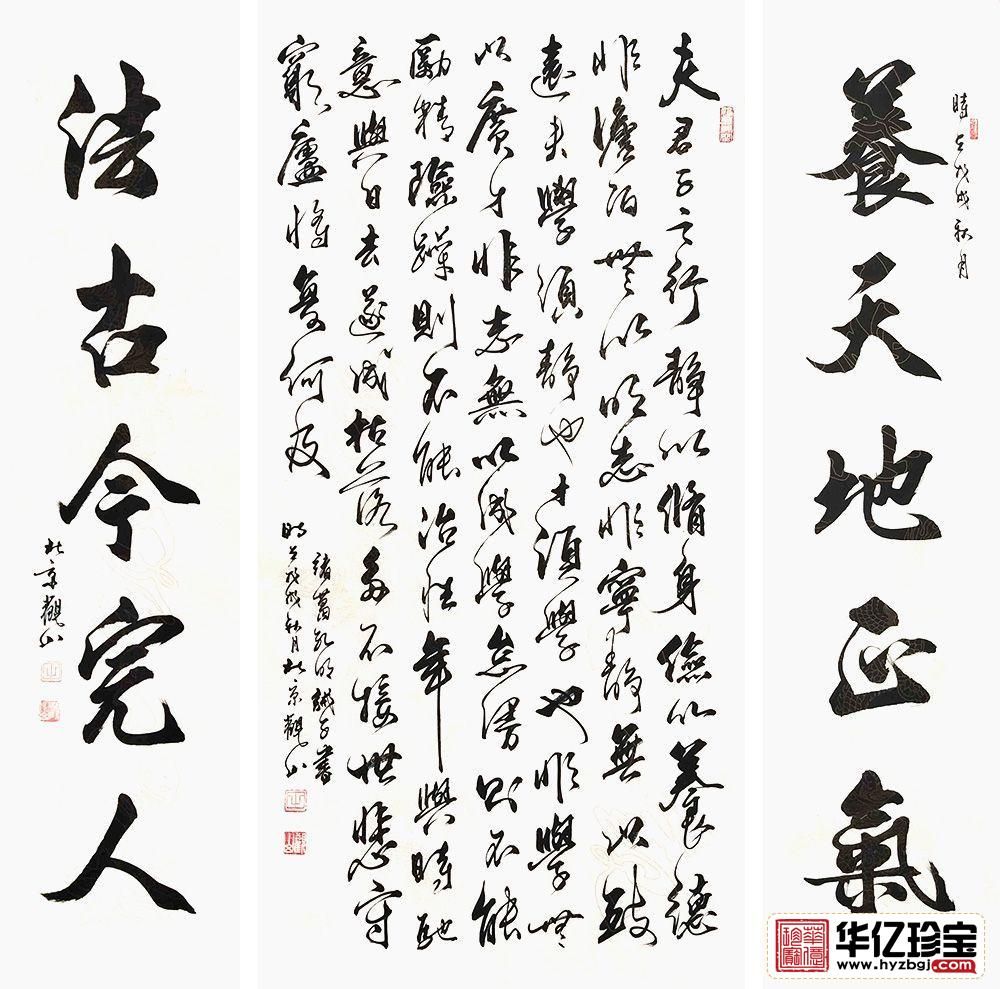 時在戊戌秋月
養天地正氣
夫君子之行靜以脩身儉以養德
非澹泊無以明志非寧靜無以致
遠夫學須靜也才須學也非學無
以廣才非志無以成學怠慢則不能
勵精險躁則不能治性年與時馳
意與日去遂成枯落多不接世悲守
窮廬將復何及
諸葛孔明誡子書
時在戊戌秋月北京觀山
法古今完人
北京觀山
华亿珍宝
www.hyzbgj.com